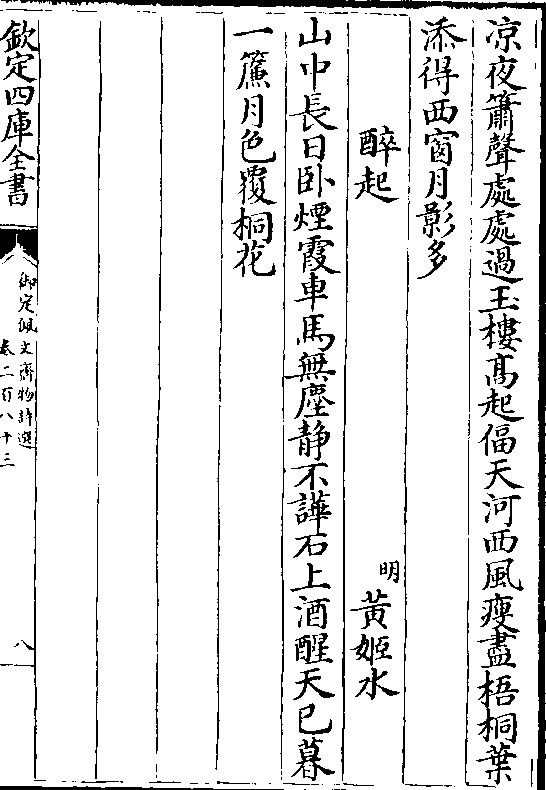 凉夜簫聲處處過玉樓髙起偪天河西風瘦盡梧桐葉
添得西窗月影多
醉起
明
黃姬水
山中長日卧煙霞車馬無塵静不譁石上酒醒天已暮
一簾月色覆桐花
欽定四庫全書
御定佩文齋物詩選
卷二百八十三
八